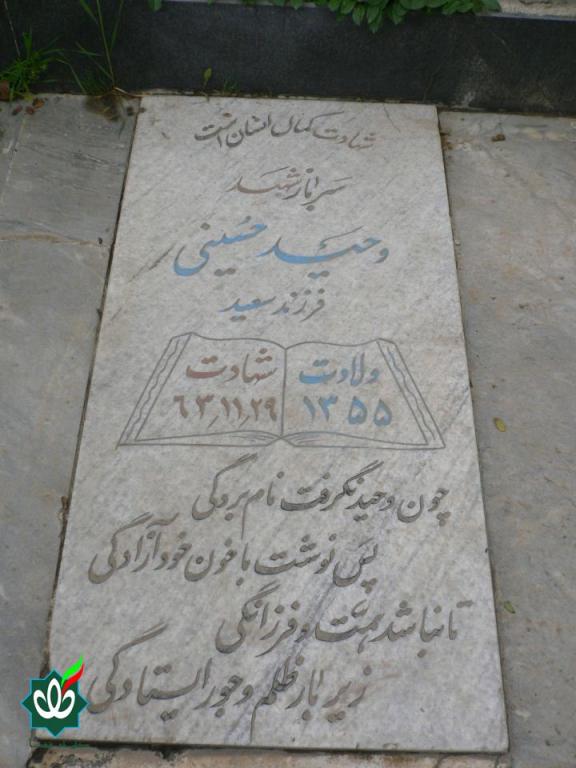 شهادت کمال انسان است
سرباز شهید
وحید حسینی
فرزند سعید
ولادت
۱۳۵۵
شهادت
۶۳,۱۱,۲۹
چون وحید نگرفت نام بردگی
پس نوشت با خون خود آزادگی
تا نباشد همت و فرزانگی
زیر بار ظلم و جور ایستادگی